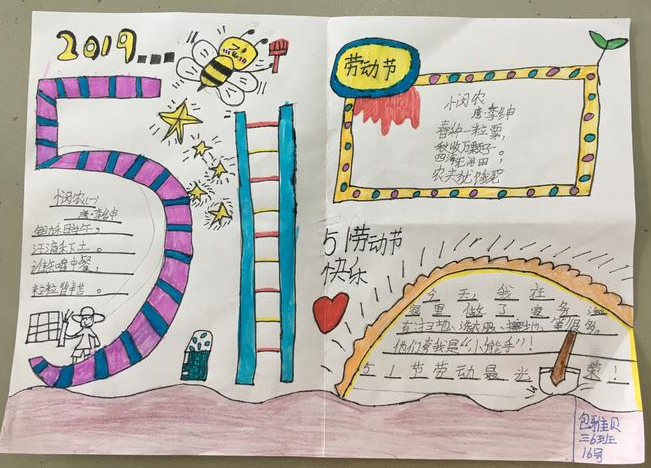 2019...
51
悯农(一)
唐·李绅
锄禾日当午,
汗滴禾下土。
谁知盘中餐,
粒粒皆辛苦。
劳动节
悯农
唐·李绅
春种一粒粟,
秋收万颗子。
四海无闲田,
农夫犹饿死
51劳动节
快乐
今天,我在
家里做了家务
有扫地、洗衣服、
他们夸我是“小能手”!
51节劳动最光荣!
包雅贝
三6班
16号